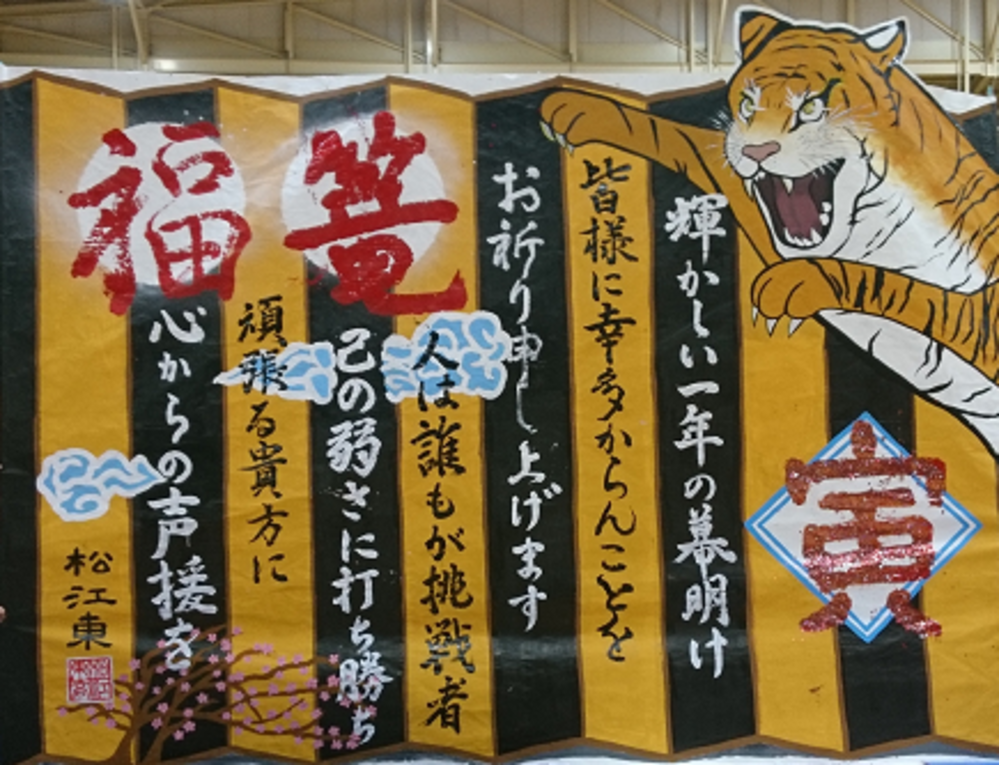 寅
輝かしい一年の幕明け
皆様に幸多からんことを
お祈り申し上げます
篭福
人は誰もが挑戦者
己の弱さに打ち勝ち
頑張る貴方に
心からの声援を
松江東